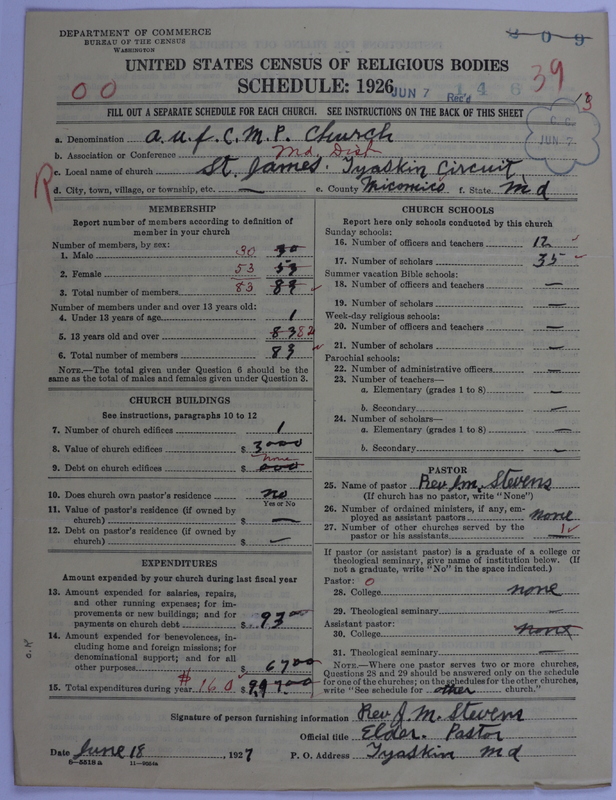 DEPARTMENT OF COMMERCE
BUREAU OF THE CENSUS
WASHINGTON
UNITED STATES CENSUS OF RELIGIOUS BODIES
SCHEDULE: 1926
JUN 7 Rec'd 1 4 6 39
0 0
FILL OUT A SEPARATE SCHEDULE FOR EACH CHURCH. SEE INSTRUCTIONS ON THE BACK OF THIS SHEET
C. C. JUN 7
a. Denomination a.u.f.C.M.P. Church
b. Association or Conference Md. Dist
R c. Local name of church St. James. Tyaskin Circuit
d. City, town, village, or township, etc. — e. County Wicomico f. State Md
MEMBERSHIP
Report number of members according to definition of member in your church
Number of members, by sex:
1. Male 30 30
2. Female 53 53
3. Total number of members 83 83
Number of members under and over 13 years old:
4. Under 13 years of age 1
5. 13 years old and over 83 82
6. Total number of members 83
NOTE.—The total given under Question 6 should be the same as the total of males and females given under Question 3.
CHURCH BUILDINGS
See instructions, paragraphs 10 to 12
7. Number of church edifices 1
8. Value of church edifices $ 3000
none
9. Debt on church edifices $ 000
10. Does church own pastor's residence no
Yes or No
11. Value of pastor's residence (if owned by church) $ —
12. Debt on pastor's residence (if owned by church) $ —
EXPENDITURES
Amount expended by your church during last fiscal year
13. Amount expended for salaries, repairs, and other running expenses; for improvements or new buildings; and for payments on church debt $ 93 00
14. Amount expended for benevolences, including home and foreign missions; for denominational support; and for all other purposes $ 67 00
15. Total expenditures during year $160 $
CHURCH SCHOOLS
Report here only schools conducted by this church
Sunday schools:
16. Number of officers and teachers 12
17. Number of scholars 35
Summer vacation Bible schools:
18. Number of officers and teachers —
19. Number of scholars —
Week-day religious schools:
20. Number of officers and teachers —
21. Number of scholars —
Parochial schools:
22. Number of administrative officers —
23. Number of teachers—
a. Elementary (grades 1 to 8) —
b. Secondary —
24. Number of scholars—
a. Elementary (grades 1 to 8) —
b. Secondary —
PASTOR
25. Name of pastor Rev J.M. Stevens
(If church has no pastor, write "None")
26. Number of ordained ministers, if any, employed as assistant pastors none
27. Number of other churches served by the pastor or his assistants 1
If pastor (or assistant pastor) is a graduate of a college or theological seminary, give name of institution below. (If not a graduate, write "No" in the space indicated.)
Pastor: 0
28. College none
29. Theological seminary —
Assistant pastor:
30. College none
31. Theological seminary —
NOTE.—Where one pastor serves two or more churches, Questions 28 and 29 should be answered only on the schedule for one of the churches; on the schedules for the other churches, write "See schedule for other church."
Signature of person furnishing information Rev J. M. Stevens
Official title Elder. Pastor
Date June 18, 1927 P. O. Address Tyaskin Md
8—5518 a